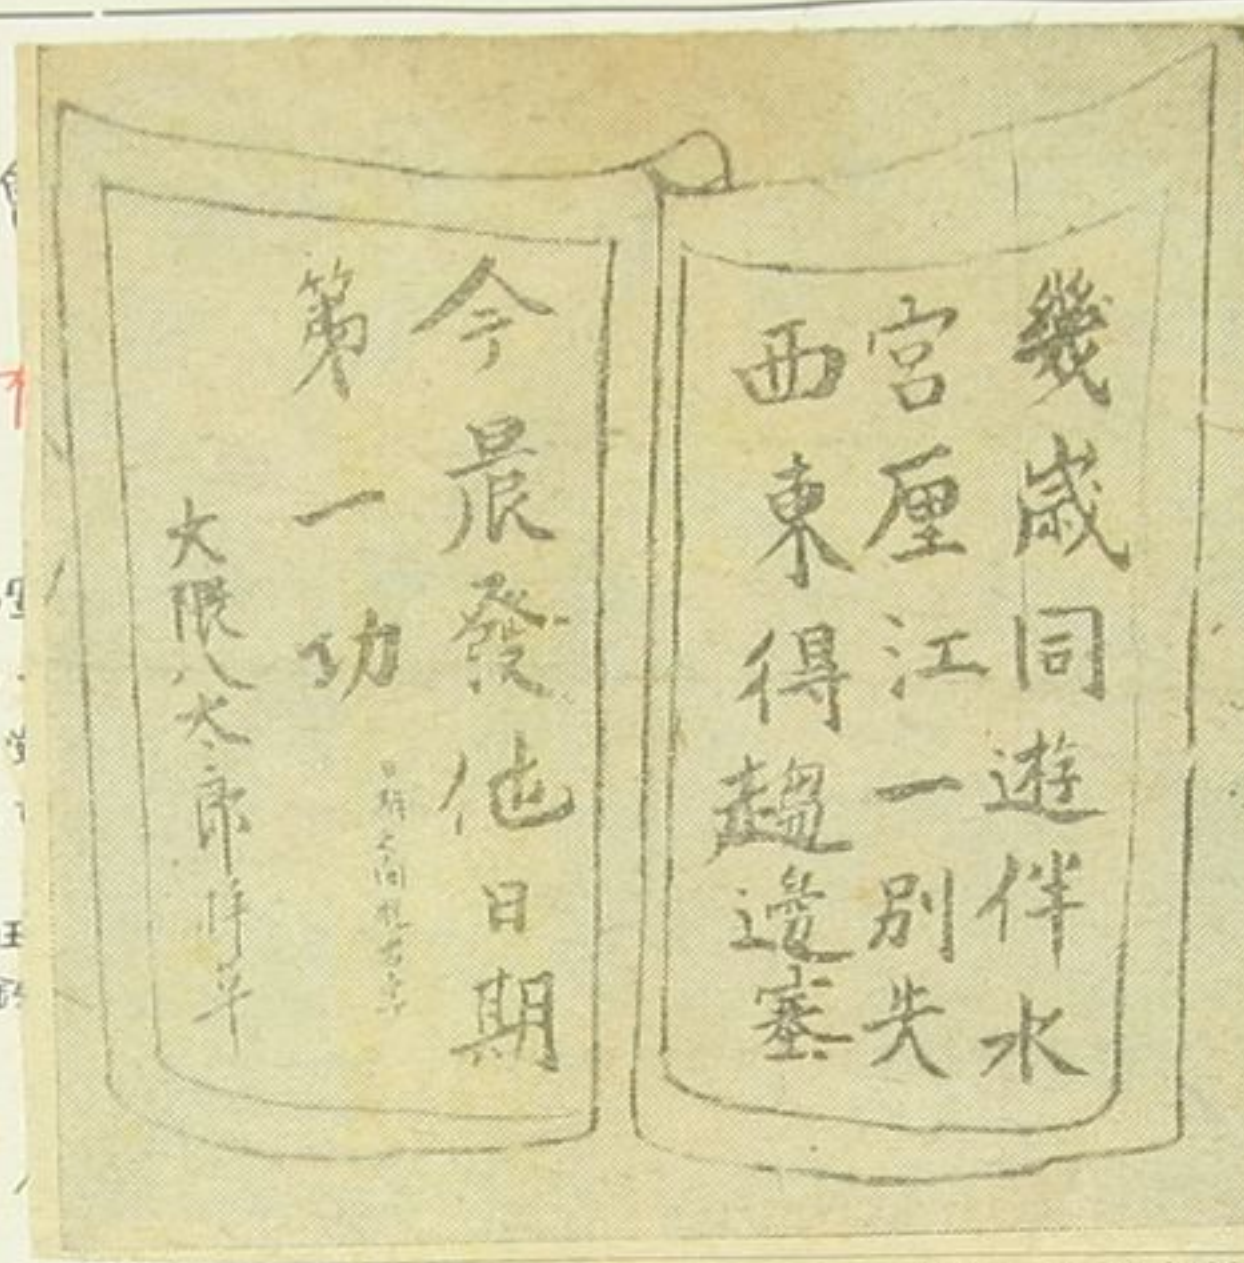 幾歳同遊伴水
宮厘江一別失
西東得趨邊塞
今晨發他日期
第一功
大隈八太郎拝草